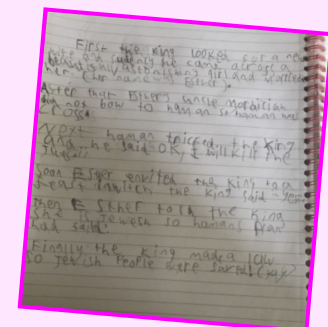 First the King looked for a new
wife and suddenly he came across a
beautifuly astonishing girl and married
her (her name = Esther).
After that Esther's uncle mordician
did not bow to human so human was
cross.
Next human tricked the King
and he said OK, I will kill the
Soon Esger envited the King to a
feast in witch the King said yes
Then Esther told the King
she is Jewesh so humans plan
had said.
Finally the King made a law
so Jewish People were saved. (yay)